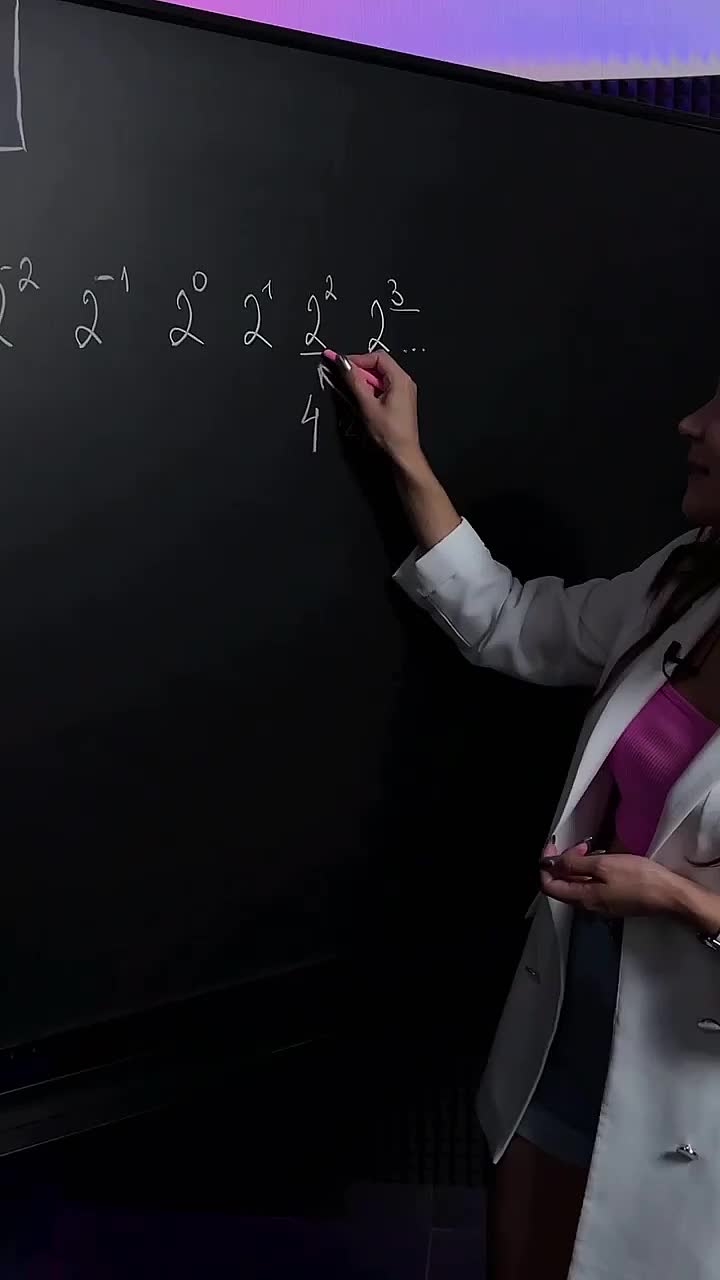 2⁻² 2⁻¹ 2⁰ 2¹ 2² 2³ ...
4